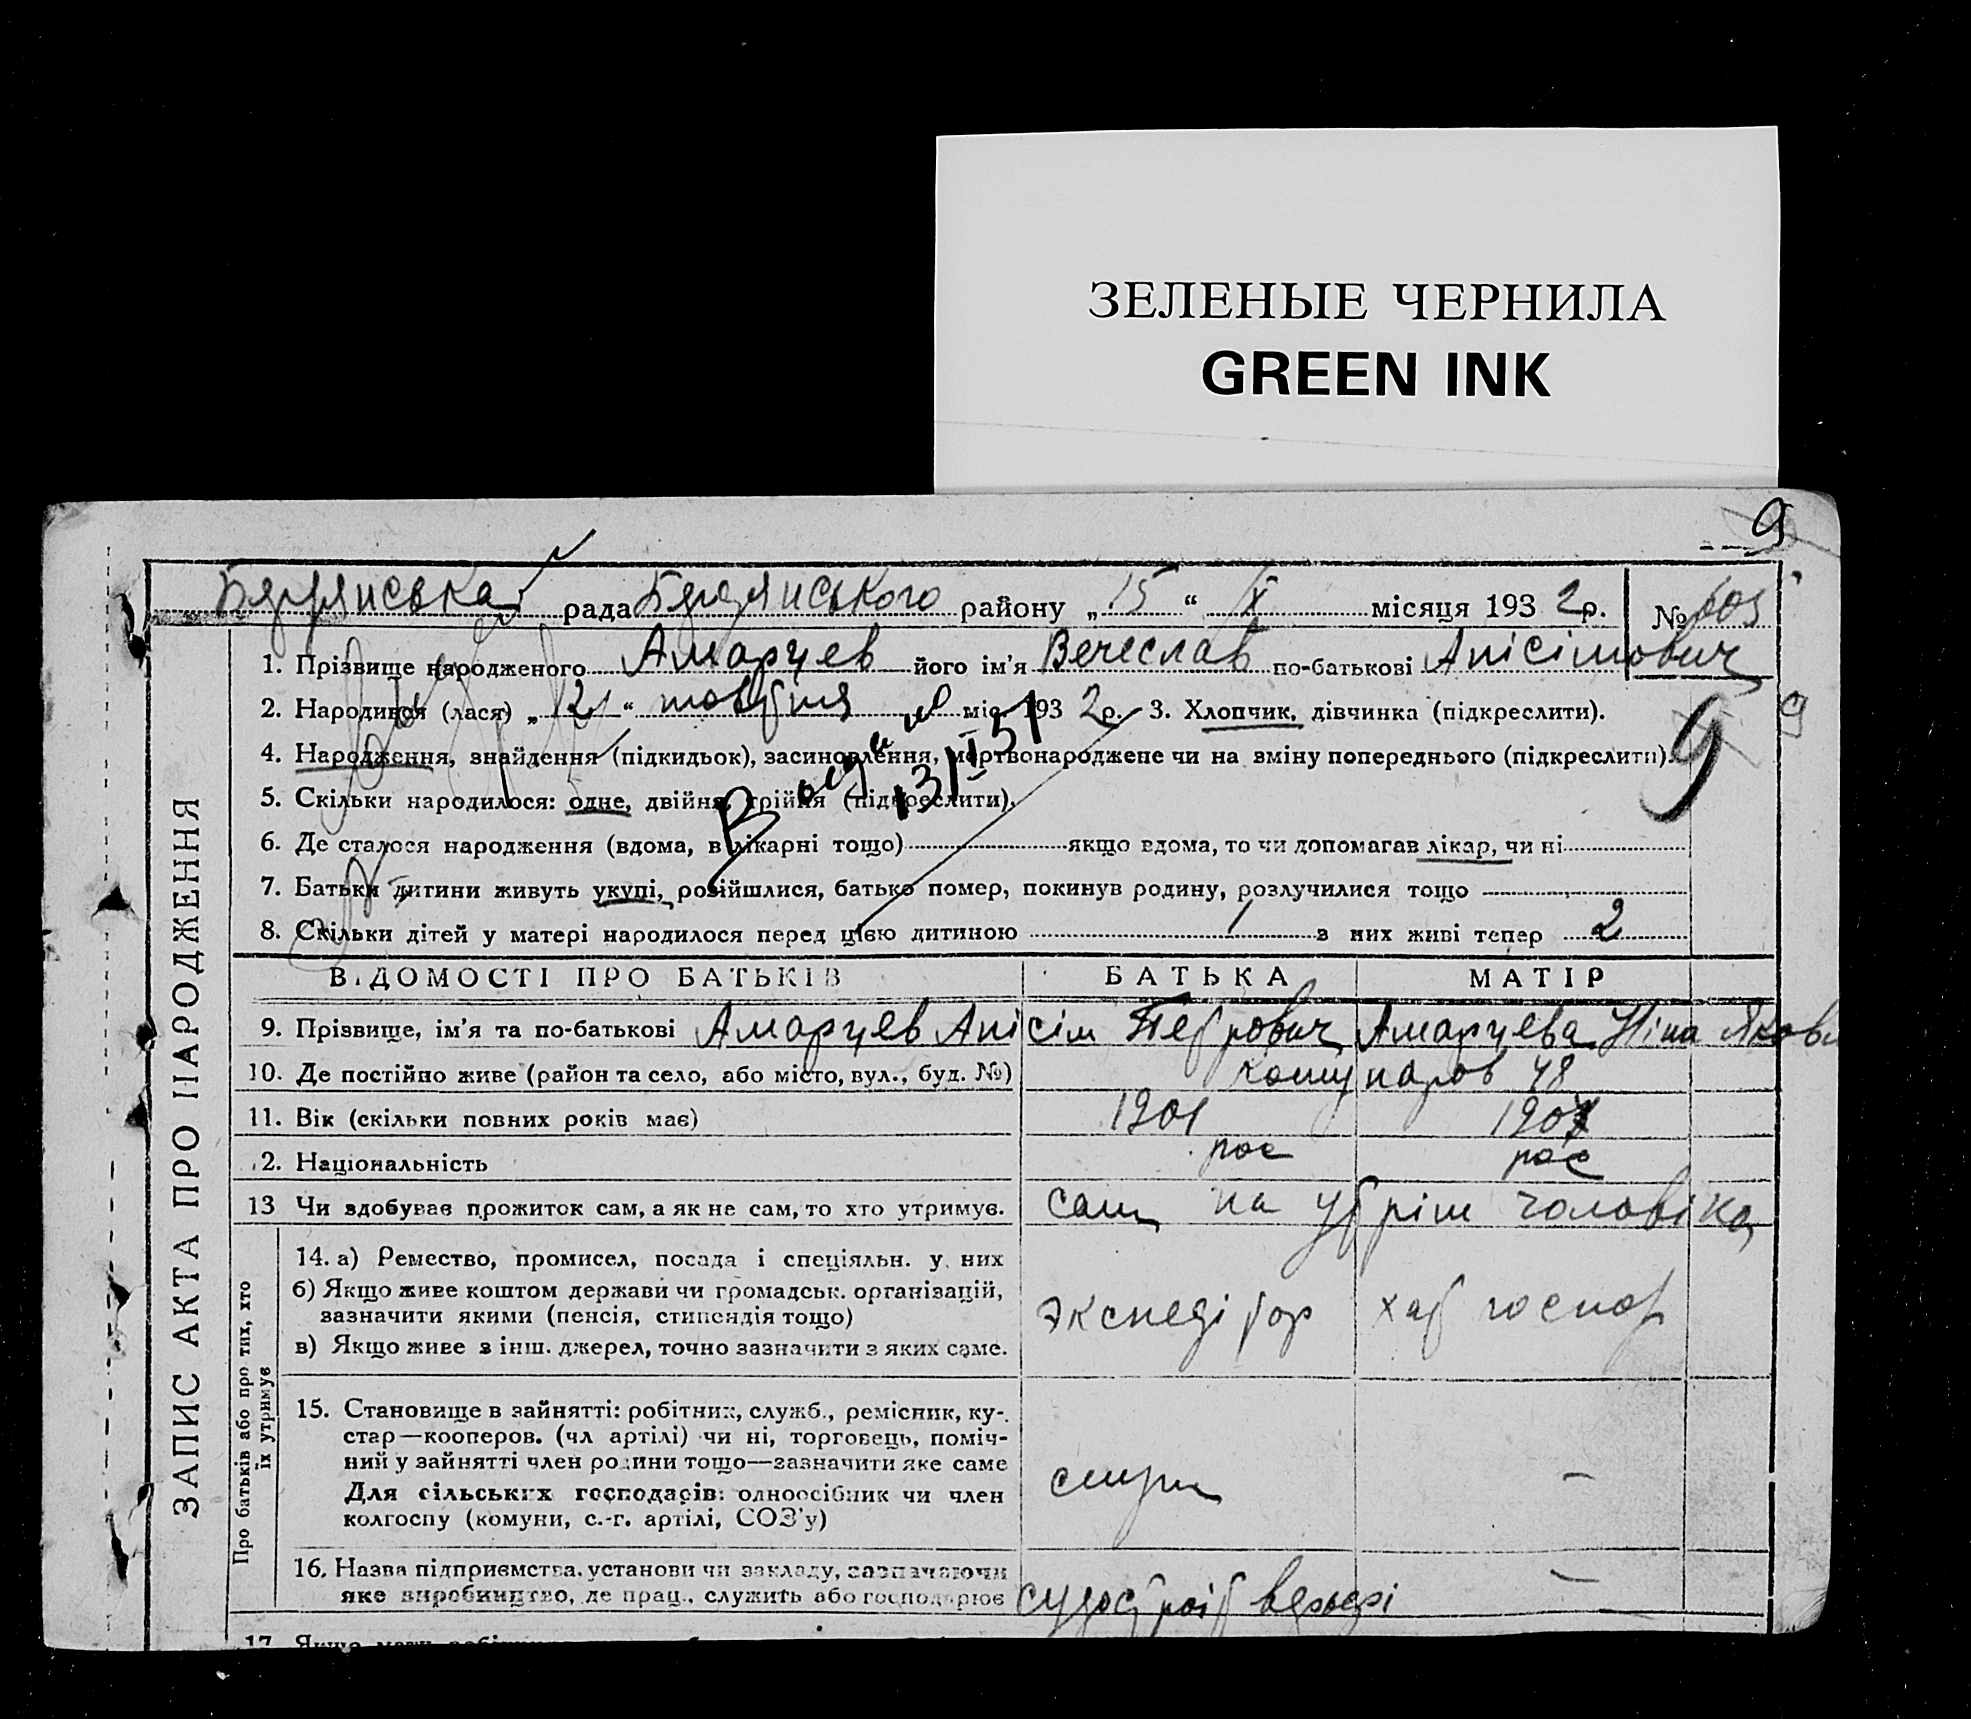 ЗЕЛЕНЫЕ ЧЕРНИЛА
GREEN INK
9
Бердянська рада Бердянського району „ 15 “ X місяця 193 2 р. № 605
1. Прізвище народженого Амарцев його ім’я Вечеслав по-батькові Анісімович
2. Народився (лася) „ 12 “ жовтня міс. 193 2 р. 3. Хлопчик, дівчинка (підкреслити). 9
4. Народження, знайдення (підкидьок), засиновлення, мертвонароджене чи на зміну попереднього (підкреслити). 9
13/I 51
5. Скільки народилося: одне, двійня, трійня (підкреслити).
6. Де сталося народження (вдома, в лікарні тощо) якщо вдома, то чи допомагав лікар, чи ні
7. Батьки дитини живуть укупі, розійшлися, батько помер, покинув родину, розлучилися тощо
8. Скільки дітей у матері народилося перед цією дитиною 1 з них живі тепер 2
ВІДОМОСТІ ПРО БАТЬКІВ БАТЬКА МАТІР
9. Прізвище, ім’я та по-батькові Амарцев Анісім Петрович Амарцева Ніна Якови
10. Де постійно живе (район та село, або місто, вул., буд. №) комунаров 48
11. Вік (скільки повних років має) 1901 1907
12. Національність рос рос
13 Чи здобуває прожиток сам, а як не сам, то хто утримує. сам на утрім чоловіка
14. а) Ремество, промисел, посада і спеціяльн. у них
б) Якщо живе коштом держави чи громадськ. організацій,
зазначити якими (пенсія, стипендія тощо) экспедітор хат господ
в) Якщо живе з інш. джерел, точно зазначити з яких саме.
15. Становище в зайнятті: робітник, служб., ремісник, ку-
стар—кооперов. (чл артілі) чи ні, торговець, поміч-
ний у зайнятті член родини тощо—зазначити яке саме
Для сільських господарів: одноосібник чи член служ –
колгоспу (комуни, с.-г. артілі, СОЗ’у)
16. Назва підприємства, установи чи закладу, зазначаючи
яке виробництво, де прац., служить або господарює судостроїт верьфі –
17. Якщо мати
ЗАПИС АКТА ПРО НАРОДЖЕННЯ
Про батьків або про тих, хто
їх утримує